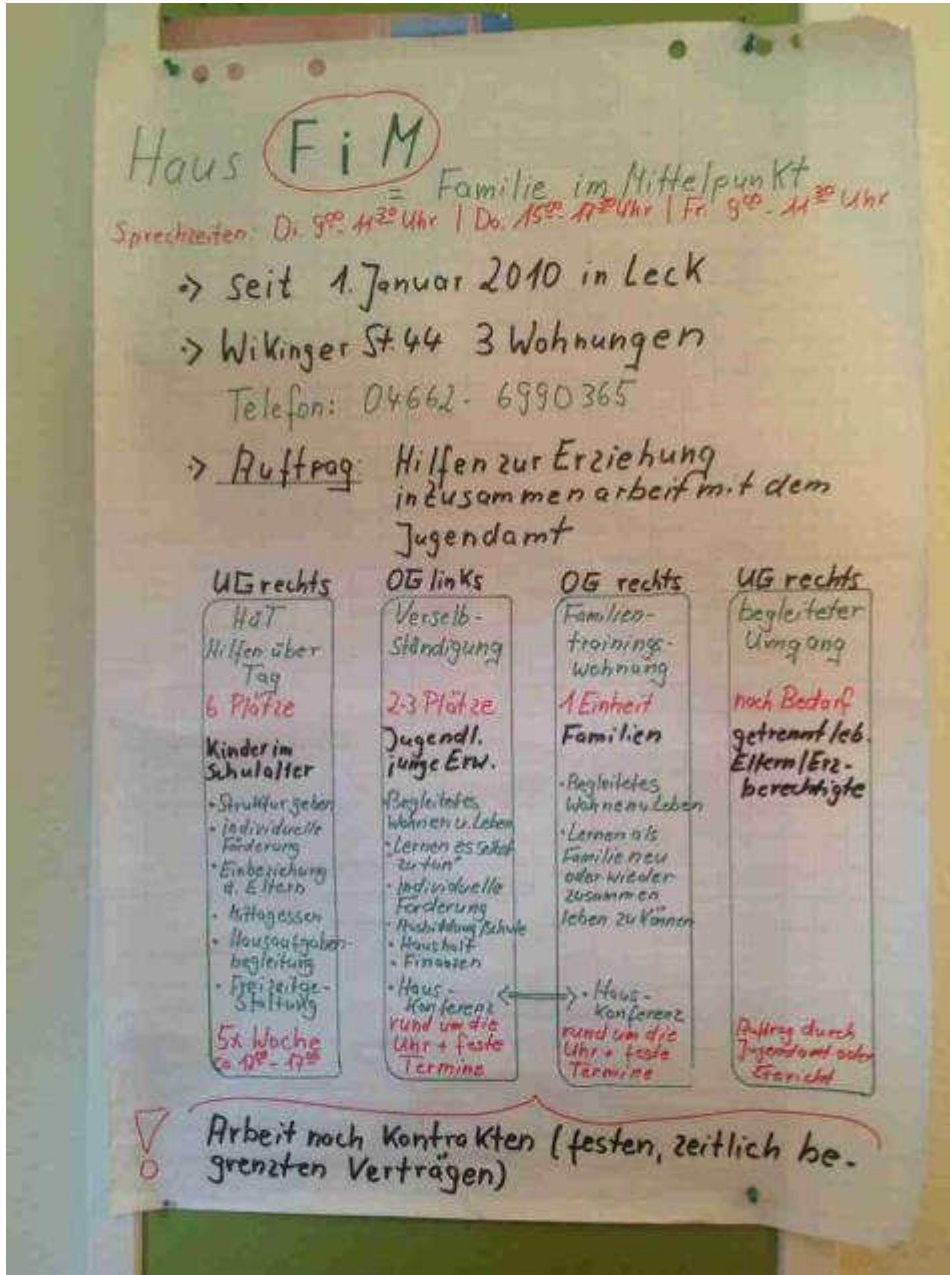 Haus FiM
= Familie im Mittelpunkt
Sprechzeiten: Di. 9⁰⁰- 11³⁰ Uhr | Do. 15⁰⁰- 17³⁰ Uhr | Fr. 9⁰⁰ - 11³⁰ Uhr
-> seit 1. Januar 2010 in Leck
-> Wikinger St. 44 3 Wohnungen
Telefon: 04662 - 6990365
-> Auftrag: Hilfen zur Erziehung
in Zusammenarbeit mit dem
Jugendamt
UG rechts
HüT
Hilfen über
Tag
6 Plätze
Kinder im
Schulalter
• Struktur geben
• individuelle
Förderung
• Einbeziehung
d. Eltern
• Mittagessen
• Hausaufgaben-
begleitung
• Freizeitge-
staltung
5x Woche
ca 12⁰⁰ - 17⁰⁰
OG links
Verselb-
ständigung
2-3 Plätze
Jugendl.
junge Erw.
• Begleitetes
Wohnen u. Leben
• "Lernen es selbst
zu tun"
• Individuelle
Förderung
• Ausbildung/Schule
• Haushalt
• Finanzen
• Haus-
Konferenz
rund um die
Uhr + feste
Termine
OG rechts
Familien-
trainings-
wohnung
1 Einheit
Familien
• Begleitetes
Wohnen u. Leben
• Lernen als
Familie neu
oder wieder
zusammen
leben zu können
• Haus-
Konferenz
rund um die
Uhr + feste
Termine
UG rechts
begleiteter
Umgang
nach Bedarf
getrennt leb.
Eltern/Erz-
berechtigte
Auftrag durch
Jugendamt oder
Gericht
! Arbeit nach Kontrakten (festen, zeitlich be-
grenzten Verträgen)